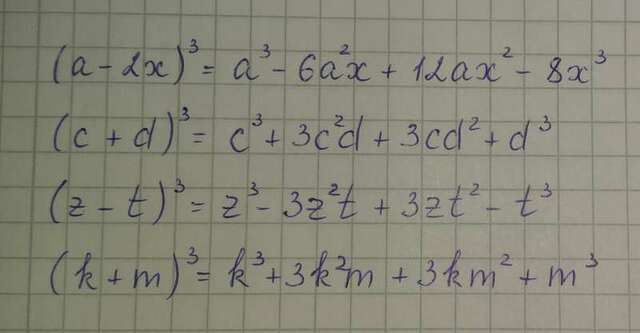 (a - 2x)³ = a³ - 6a²x + 12ax² - 8x³
(c + d)³ = c³ + 3c²d + 3cd² + d³
(z - t)³ = z³ - 3z²t + 3zt² - t³
(k + m)³ = k³ + 3k²m + 3km² + m³